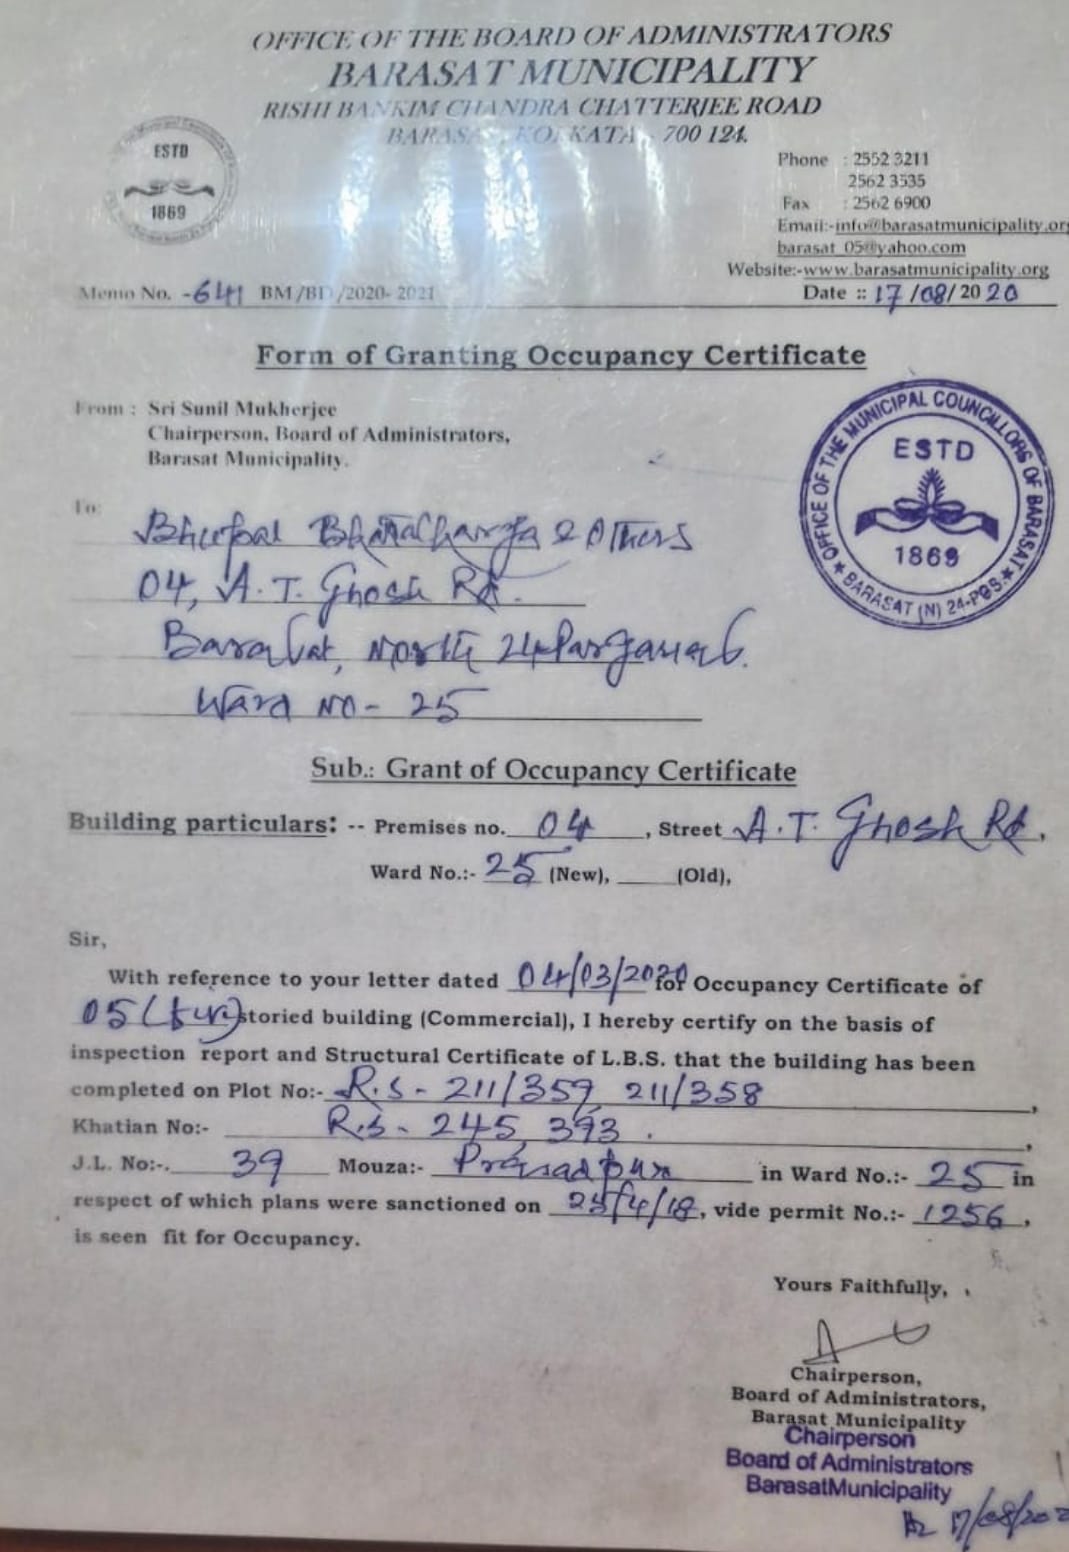 OFFICE OF THE BOARD OF ADMINISTRATORS
BARASAT MUNICIPALITY
RISHI BANKIM CHANDRA CHATTERJEE ROAD
BARASAT, KOLKATA - 700 124.
ESTD
1869
Phone : 2552 3211
2562 3535
Fax : 2562 6900
Email:-info@barasatmunicipality.org
barasat_05@yahoo.com
Website:-www.barasatmunicipality.org
Memo No. -641 BM/BD/2020-2021
Date :: 17/08/2020
Form of Granting Occupancy Certificate
From : Sri Sunil Mukherjee
Chairperson, Board of Administrators,
Barasat Municipality.
OFFICE OF THE MUNICIPAL COUNCILLORS OF BARASAT
BARASAT (N) 24-PGS.
ESTD
1869
To:
Bhupal Bhattacharya & Others
04, A.T. Ghosh Rd.
Barasat, North 24 Parganas.
Ward No - 25
Sub.: Grant of Occupancy Certificate
Building particulars: -- Premises no. 04, Street A.T. Ghosh Rd,
Ward No.:- 25 (New), ____ (Old),
Sir,
With reference to your letter dated 04/03/2020 for Occupancy Certificate of
05 (five) storied building (Commercial), I hereby certify on the basis of
inspection report and Structural Certificate of L.B.S. that the building has been
completed on Plot No:- R.S - 211/359, 211/358,
Khatian No:- R.S - 245, 393.,
J.L. No:-. 39 Mouza:- Prasadpur in Ward No.:- 25 in
respect of which plans were sanctioned on /4/18, vide permit No.:- 1256,
is seen fit for Occupancy.
Yours Faithfully,
Chairperson,
Board of Administrators,
Barasat Municipality
Chairperson
Board of Administrators
BarasatMunicipality
17/08/202